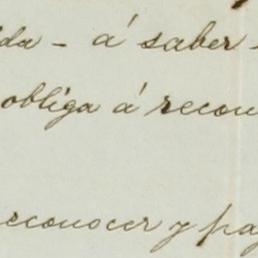 ida - á saber -
obliga á recon
reconocer y pag